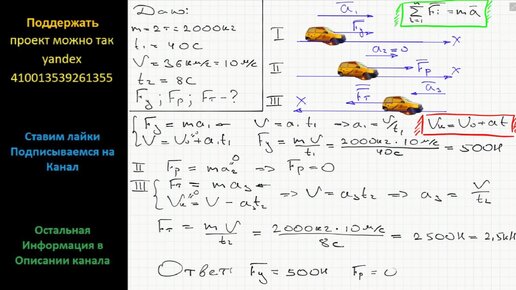 Поддержать
проект можно так
yandex
410013539261355
Ставим лайки
Подписываемся на
Канал
Остальная
Информация в
Описании канала
Дано:
m = 2т = 2000кг
t₁ = 40с
V = 36км/ч = 10м/с
t₂ = 8с
Fу; Fр; Fт - ?
I a₁ Fу X
II a₂ = 0 Fр X
III X Fт a₃
∑ Fi = ma
i=1
Vк = V₀ + at
Fу = ma₁ V = a₁t₁ ⇒ a₁ = V/t₁
V = V₀ + a₁t₁ Fу = mV/t₁ = 2000кг · 10м/с / 40с = 500Н
II Fр = ma₂ ⇒ Fр = 0
III Fт = ma₃
Vк = V - a₃t₂ ⇒ V = a₃t₂ ⇒ a₃ = V/t₂
Fт = mV/t₂ = 2000кг · 10м/с / 8с = 2500Н = 2,5кН
Ответ: Fу = 500Н Fр = 0